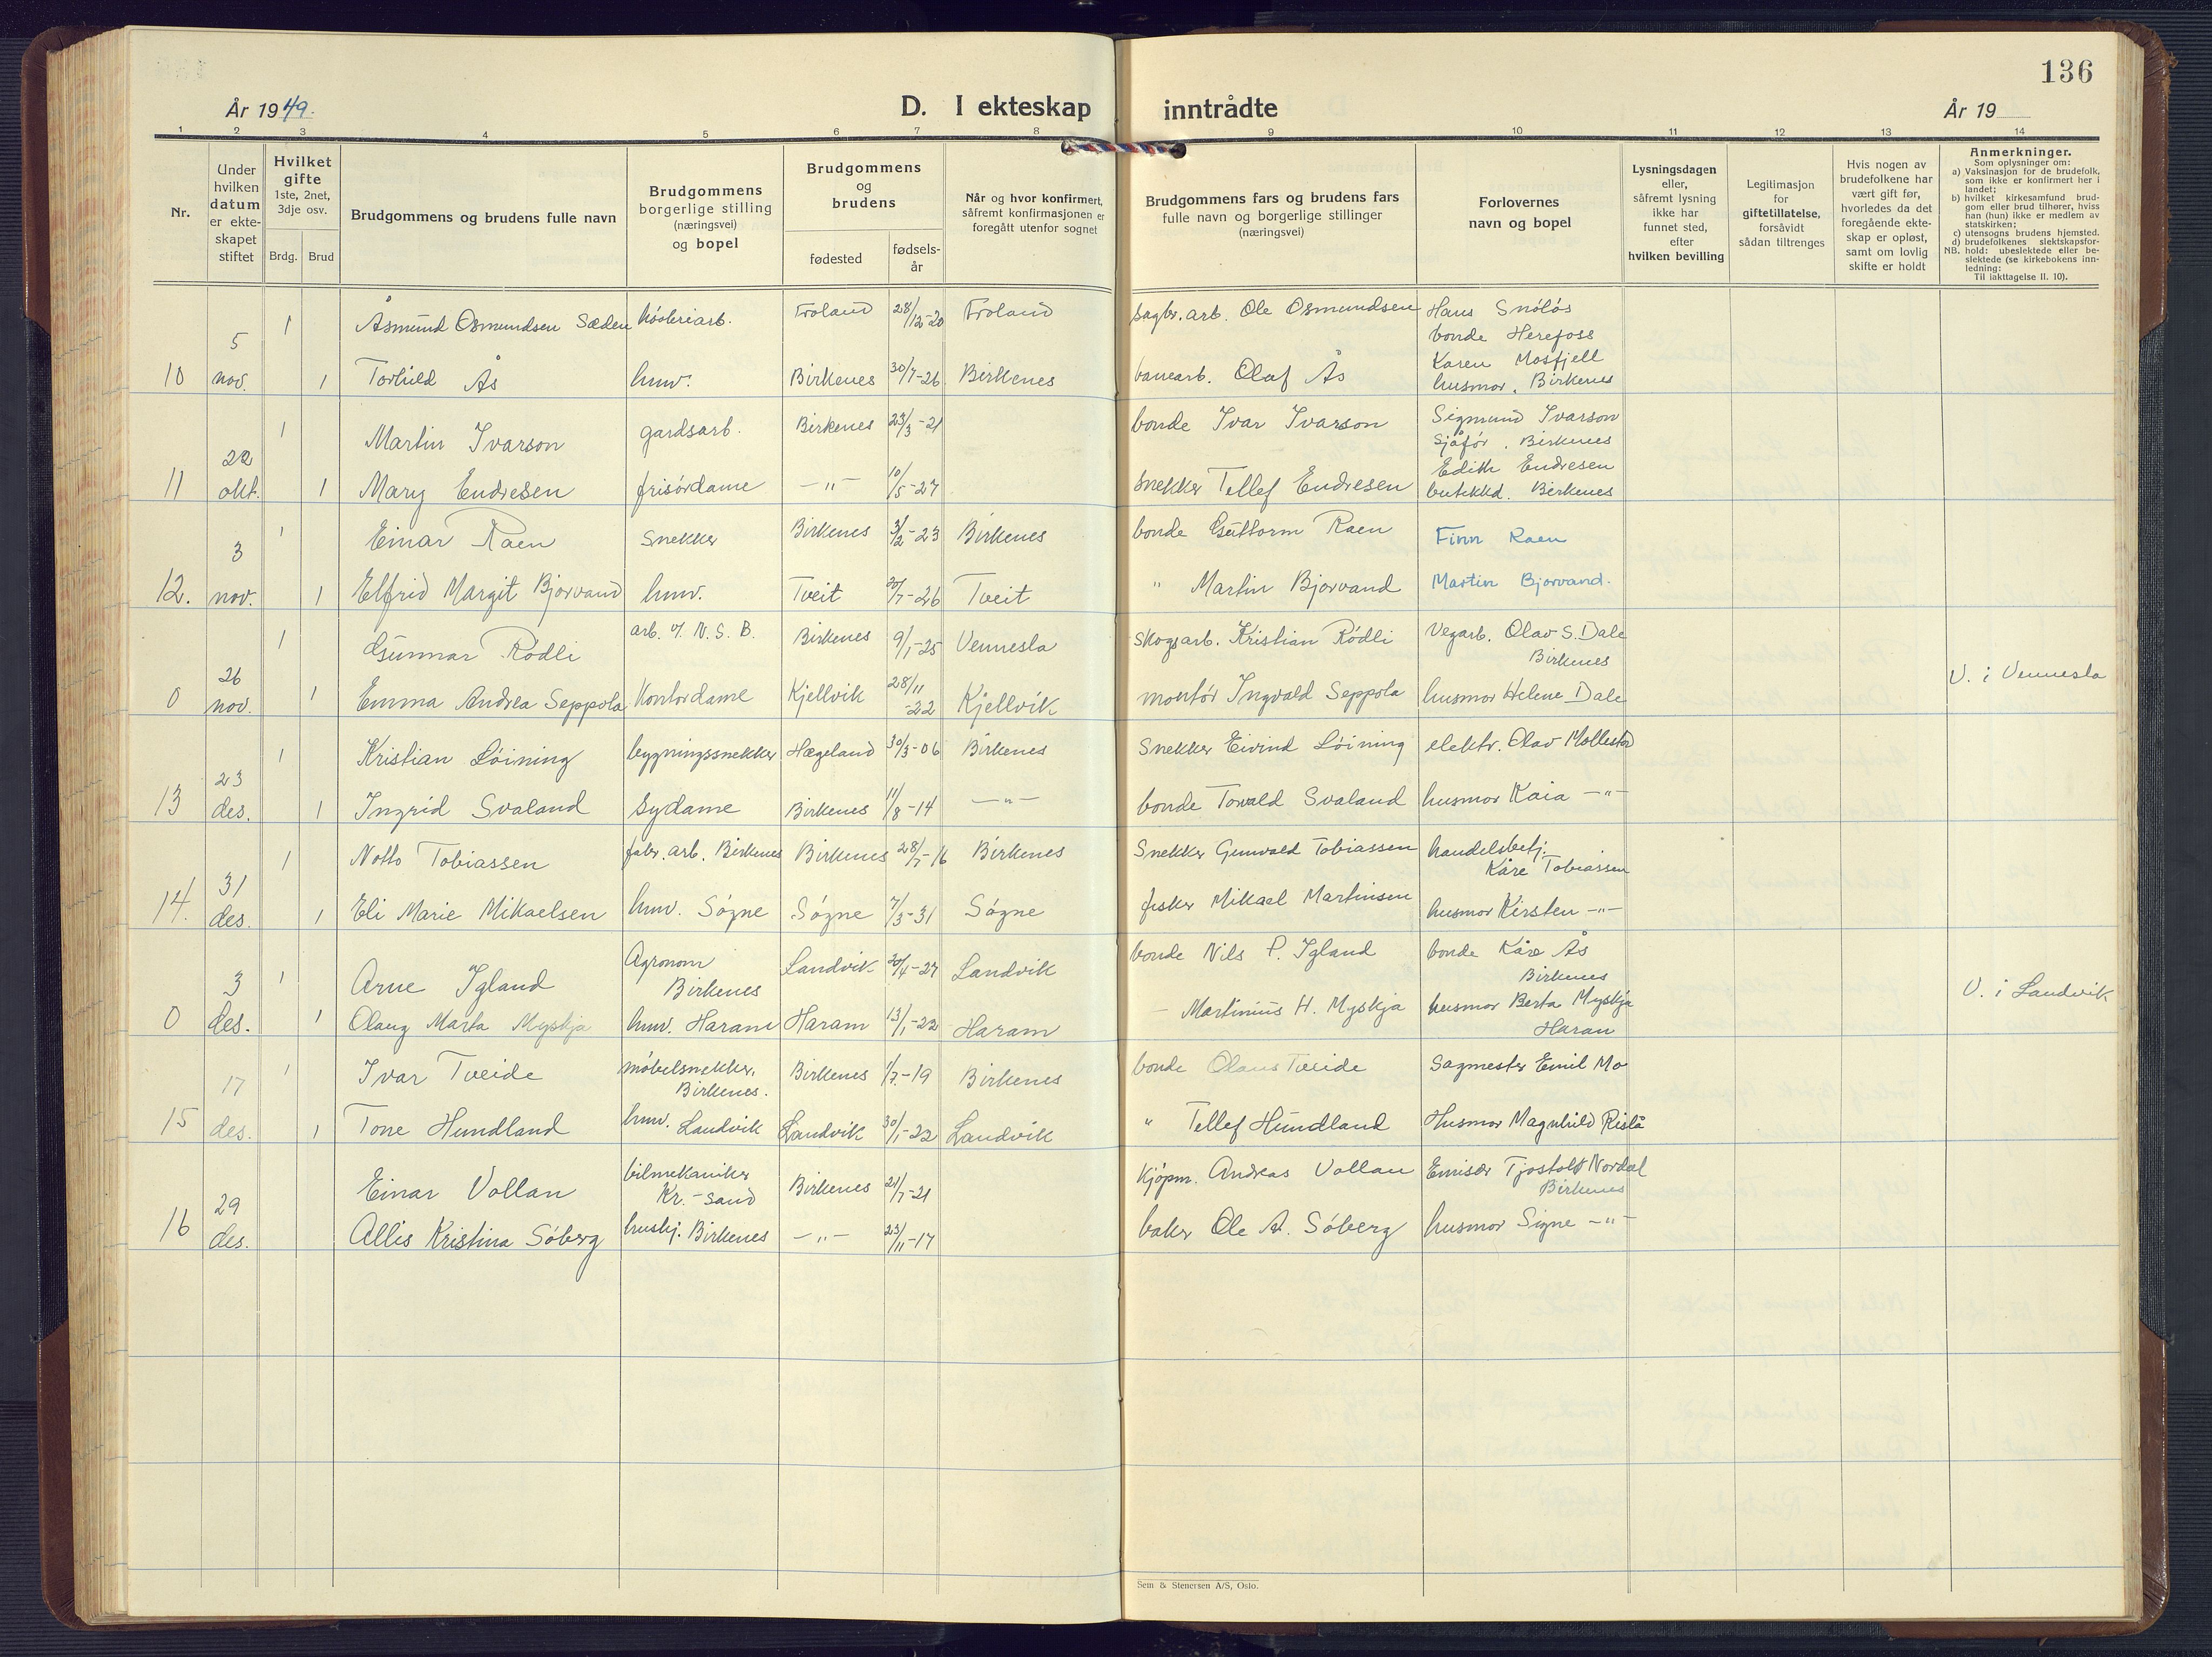 136
År 1949.
D. I ekteskap inntrådte
År 19
1 2 3 4 5 6 7 8 9 10 11 12 13 14
Nr.
Under hvilken datum er ekteskapet stiftet
Hvilket gifte
1ste, 2net, 3dje osv.
Brdg. Brud
Brudgommens og brudens fulle navn
Brudgommens borgerlige stilling (næringsvei) og bopel
Brudgommens og brudens
fødested
fødselsår
Når og hvor konfirmert, såfremt konfirmasjonen er foregått utenfor sognet
Brudgommens fars og brudens fars fulle navn og borgerlige stillinger (næringsvei)
Forlovernes navn og bopel
Lysningsdagen eller, såfremt lysning ikke har funnet sted, efter hvilken bevilling
Legitimasjon for giftetillatelse, forsåvidt sådan tiltrenges
Hvis nogen av brudefolkene har vært gift før, hvorledes da det foregående ekteskap er opløst, samt om lovlig skifte er holdt
Anmerkninger.
Som oplysninger om:
a) Vaksinasjon for de brudefolk, som ikke er konfirmert her i landet;
b) hvilket kirkesamfund brudgom eller brud tilhører, hviss han (hun) ikke er medlem av statskirken;
c) utensogns brudens hjemsted.
d) brudefolkenes slektskapsforhold: ubeslektede eller beslektede (se kirkebokens innledning:
NB. Til iakttagelse II. 10).
1 Åsmund Osmundsen Sæden Froland 28/12-20 Froland sagbr. arb. Ole Osmundsen Hans Snøløs
bonde Herefoss
10 5 nov. 1 Torhild Ås hmv. Birkenes 30/7-26 Birkenes banearb. Olaf Ås Karen Mosfjell
husmor, Birkenes
1 Martin Ivarson gardsarb. Birkenes 23/3-21 bonde Ivar Ivarson Sigmund Ivarson
sjåfør, Birkenes
11 22 okt. 1 Mary Endresen frisørdame -"- 10/5-27 snekker Tellef Endresen Edith Endresen
butikkd. Birkenes
1 Einar Raen snekker Birkenes 3/2-23 Birkenes bonde Guttorm Raen Finn Raen
12. 3 nov. 1 Elfrid Margit Bjorvand hmv. Tveit 20/7-26 Tveit " Martin Bjorvand Martin Bjorvand.
1 Gunnar Rødli arb. v/ N. S. B. Birkenes 9/1-25 Vennesla skogsarb. Kristian Rødli Vegarb. Olav S. Dale
Birkenes
0 26 nov. 1 Emma Andrea Seppola Kontordame Kjellvik 28/11-22 Kjellvik montør Ingvald Seppola husmor Helene Dale V. i Vennesla
1 Kristian Løining bygningssnekker Hægeland 30/3-06 Birkenes Snekker Eivind Løining elektr. Olav Mollestad
13 23 des. 1 Ingrid Svaland Sydame Birkenes 11/8-14 -"- bonde Torvald Svaland husmor Kaia -"-
1 Notto Tobiassen fabr. arb. Birkenes Birkenes 28/7-16 Birkenes Snekker Gunvald Tobiassen handelsbetj.
Kåre Tobiassen
14. 31 des. 1 Eli Marie Mikaelsen hmv. Søgne Søgne 7/3-31 Søgne fisker Mikael Martinsen husmor Kirsten -"-
1 Arne Igland Agronom Birkenes Landvik 20/4-27 Landvik bonde Nils P. Igland bonde Kåre Ås
Birkenes
0 3 des. 1 Olaug Marta Myskja hmv. Haram Haram 13/1-22 Haram - Martinius H. Myskja husmor Berta Myskja
Haram V. i Landvik
1 Ivar Tveide møbelsnekker, Birkenes. Birkenes 1/7-19 Birkenes bonde Olaus Tveide Sagmester Emil Mo
15 17 des. 1 Tone Hundland hmv. Landvik Landvik 30/1-22 Landvik " Tellef Hundland Husmor Magnhild Rislå
Einar Vollan bilmekaniker Kr.-sand Birkenes 21/7-21 Kjøpm. Andreas Vollan Emisær Tjostolv Nordal
Birkenes
16 29 des. Allis Kristina Søberg hushj. Birkenes -"- 23/11-17 baker Ole A. Søberg husmor Signe -"-
Sem & Stenersen A/S, Oslo.